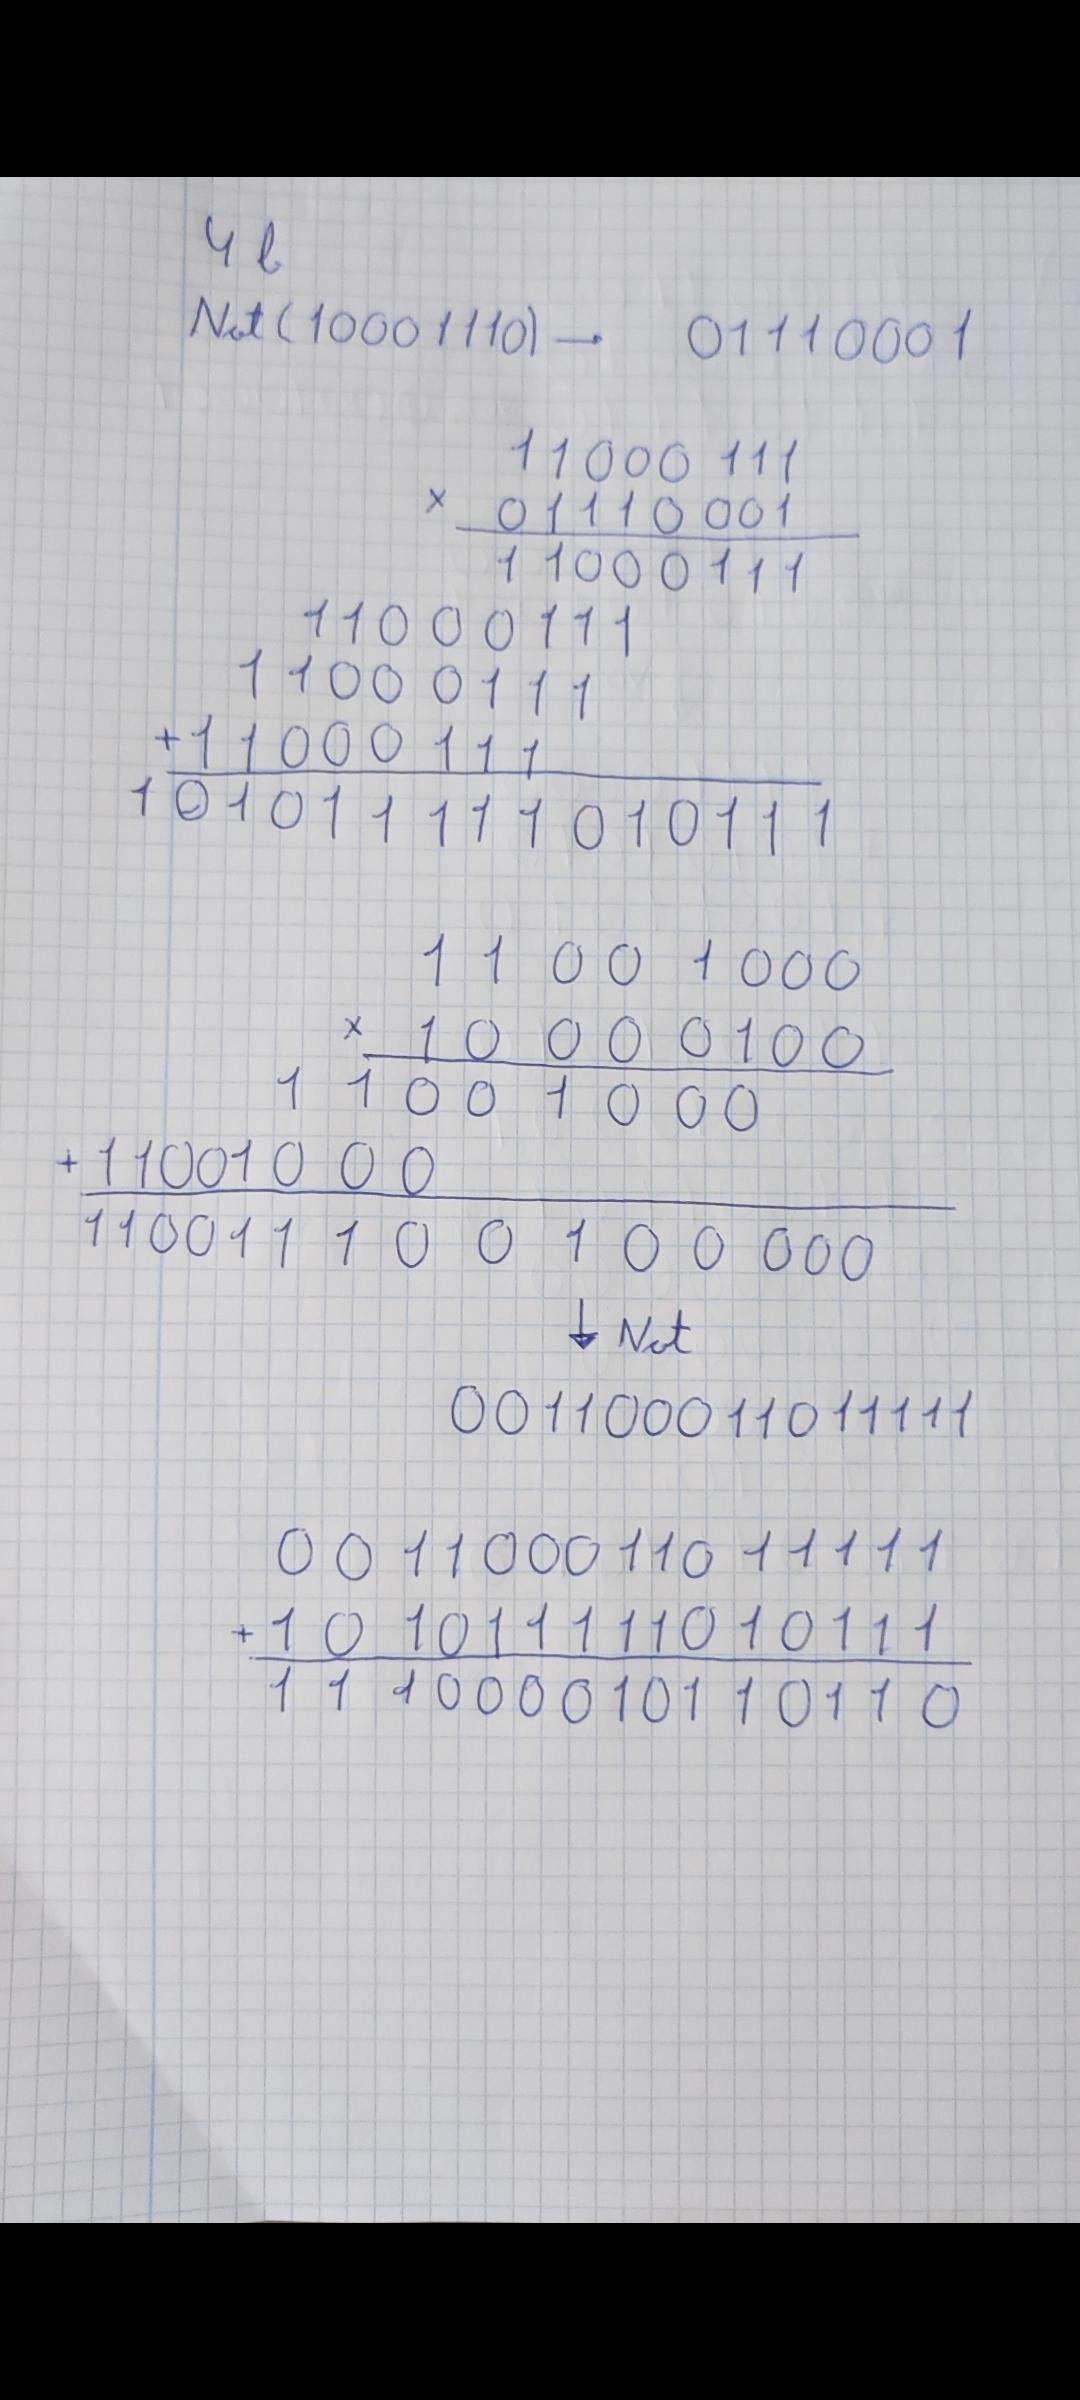 4 b
Not(10001110) → 01110001
11000111
× 01110001
11000111
11000111
11000111
+11000111
101011111010111
11001000
× 10000100
11001000
+11001000
110011100100000
↓ Not
001100011011111
001100011011111
+101011111010111
111000010110110